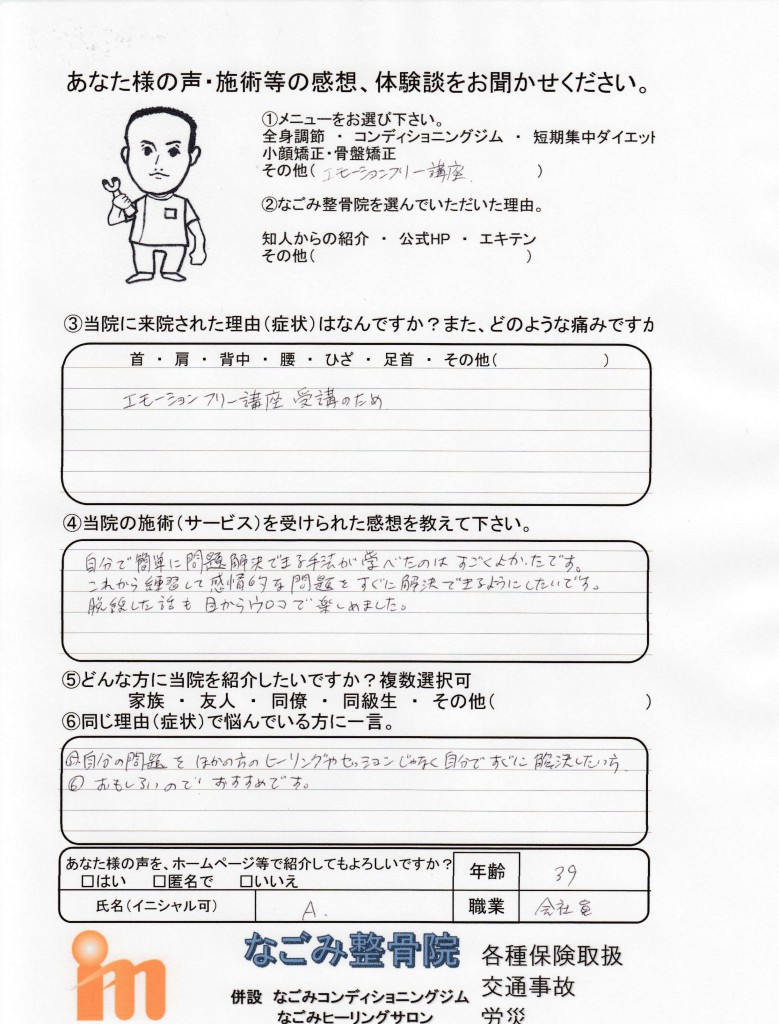 あなた様の声・施術等の感想、体験談をお聞かせください。
①メニューをお選び下さい。
全身調節 ・ コンディショニングジム ・ 短期集中ダイエット
小顔矯正・骨盤矯正
その他( エモーションフリー講座 )
②なごみ整骨院を選んでいただいた理由。
知人からの紹介 ・ 公式HP ・ エキテン
その他( )
③当院に来院された理由(症状)はなんですか?また、どのような痛みですか
首 ・ 肩 ・ 背中 ・ 腰 ・ ひざ ・ 足首 ・ その他( )
エモーションフリー講座 受講のため
④当院の施術(サービス)を受けられた感想を教えて下さい。
自分で簡単に問題解決できる手法が学べたのは すごくよかったです。
これから練習して感情的な問題をすぐに解決できるようにしたいです。
脱線した話も目からウロコで楽しめました。
⑤どんな方に当院を紹介したいですか?複数選択可
家族 ・ 友人 ・ 同僚 ・ 同級生 ・ その他( )
⑥同じ理由(症状)で悩んでいる方に一言。
⑤自分の問題をほかの方のヒーリングやセッションじゃなく自分ですぐに解決したい方
⑥ おもしろいので おすすめです。
あなた様の声を、ホームページ等で紹介してもよろしいですか?
□はい □匿名で □いいえ
年齢 39
氏名(イニシャル可) A.
職業 会社員
なごみ整骨院
併設 なごみコンディショニングジム
なごみヒーリングサロン
各種保険取扱
交通事故
労災